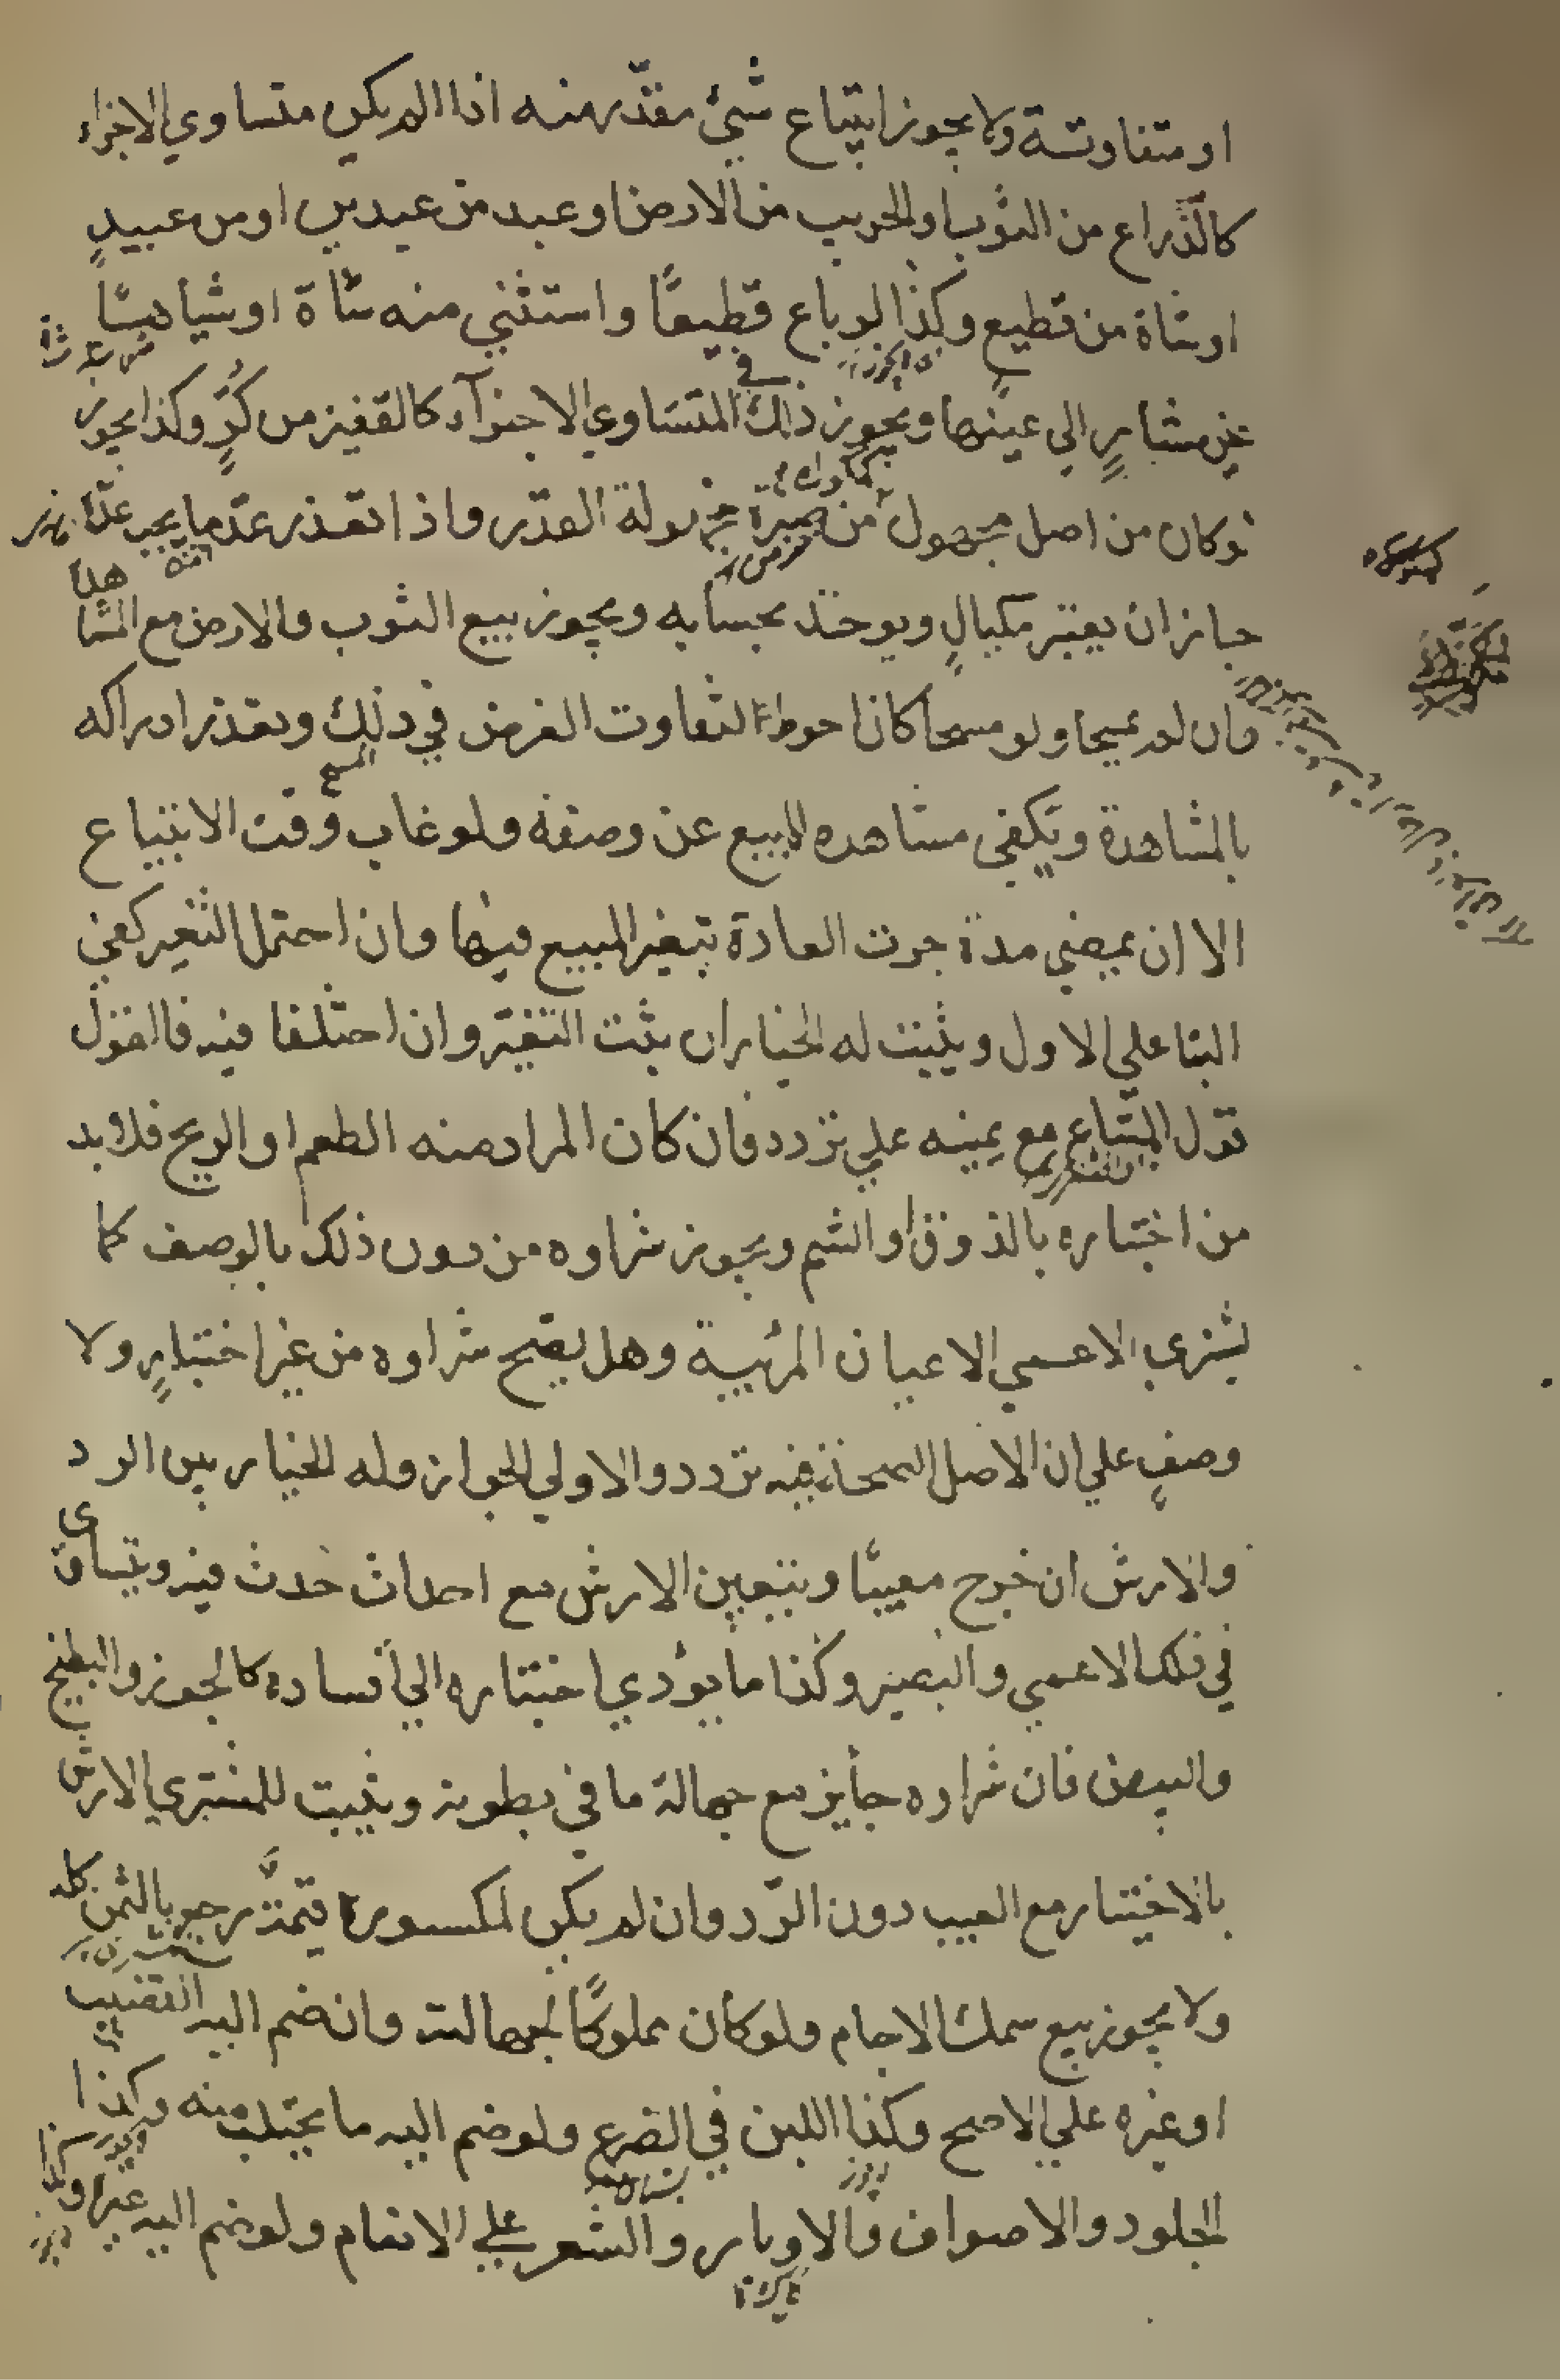 او متفاوتة ولا يجوز ابتياع شيئ مقدّر منه اذا لم يكن متساوي الاجزاء
كالذراع من الثوب او الجريب من الارض او عبد من عبدين او من عبيدٍ
او شاة من قطيع وكذا لو باع قطيعًا واستثني منه شاة او شياهًا
غير مشارٍ الي عينها ويجوز ذلك في المتساوي الاجزآء كالقفيز من كُرٍّ وكذا يجوز
لو كان من اصل مجهول من صبرة مجهولة القدر واذا تعذر عدّ ما يجب عدّه
جاز ان يعتبر بمكيالٍ ويوخذ بحسابه ويجوز بيع الثوب والارض مع المشاهدة
وان لم يمسحا ولو مسحا كان احوط لتفاوت الغرض في ذلك وتعذر ادراكه
بالمشاهدة وتكفي مشاهدة المبيع عن وصفه ولو غاب وقت الابتياع
الا ان يمضي مدة جرت العادة بتغير المبيع فيها وان احتمل التغير كفي
البنا علي الاول ويثبت له الخيار ان ثبت التغير وان اختلفا فيه فالقول
قول المبتاع مع يمينه علي تردد فان كان المراد منه الطعم او الريح فلا بد
من اختباره بالذوق او الشم ويجوز شراوه من دون ذلك بالوصف كما
يشتري الاعمي الاعيان المرئية وهل يصح شراوه من غير اختبارٍ ولا
وصفٍ علي ان الاصل الصحة فيه تردد والاولي الجواز وله الخيار بين الرد
والارش ان خرج معيبًا ويتعين الارش مع احداث حدث فيه ويتساوي
في ذلك الاعمي والبصير وكذا ما يؤدي اختباره الي افساده كالجوز والبطيخ
والبيض فان شراوه جايز مع جهالة ما في بطونه ويثبت للمشتري الارش
بالاختبار مع العيب دون الرّد وان لم يكن لمكسوره قيمة رجع بالثمن كله
ولا يجوز بيع سمك الاجام ولو كان مملوكًا لجهالته وان ضم اليه القضيب
او غيره علي الاصح وكذا اللبن في الضرع ولو ضم اليه ما يحتلب منه وكذا
الجلود والاصواف والاوبار والشعر علي الانعام ولو ضم اليه غيره وكذا